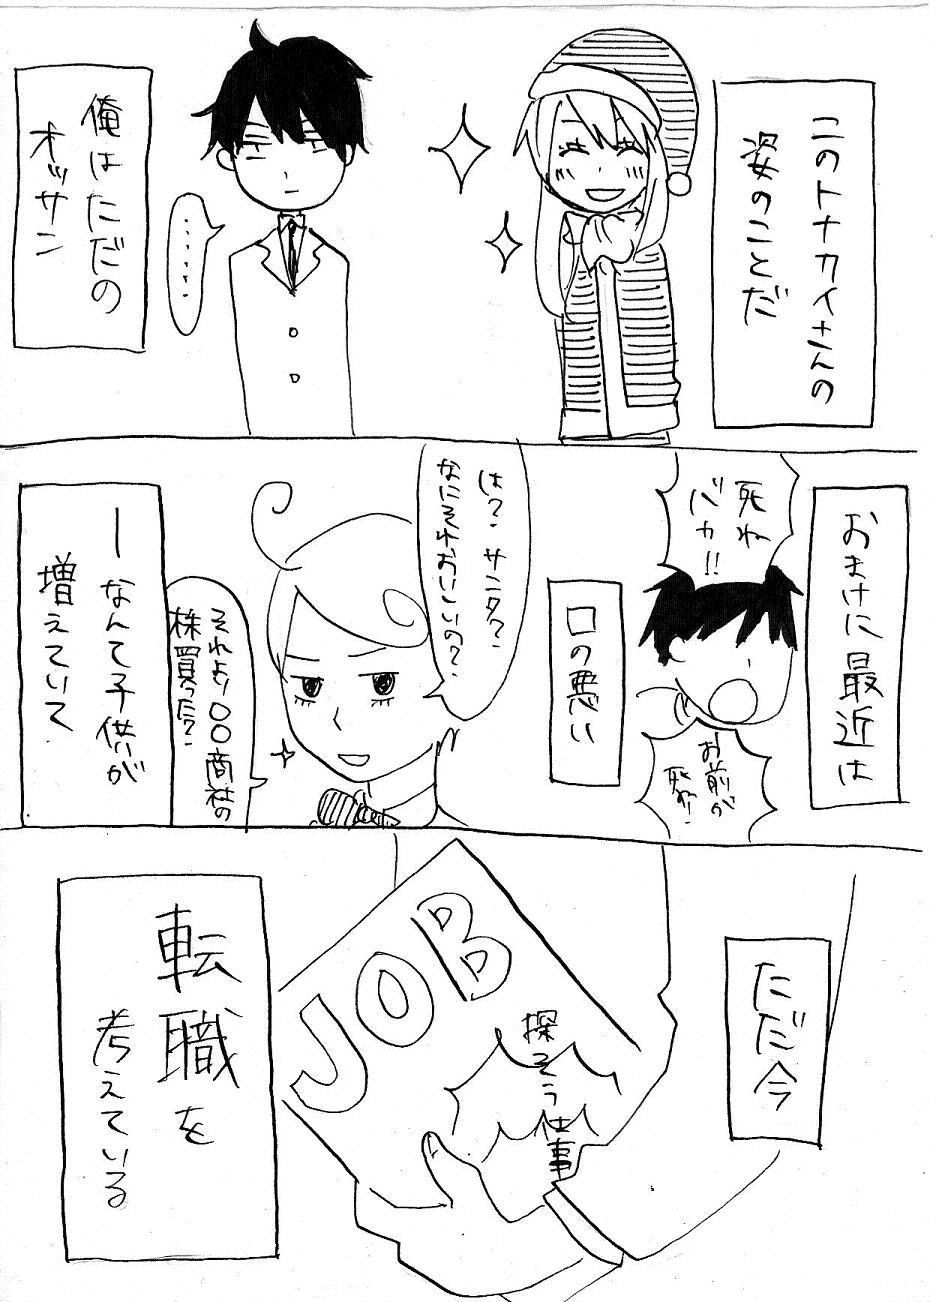 このトナカイさんの
姿のことだ
……
俺はただの
オッサン
おまけに最近は
死ね
バカ!!
お前が
死ね!
口の悪い
は?サンタ?
なにそれおいしいの?
それより〇〇商社の
株買った?
ーなんて子供が
増えていて
ただ今
JOB
探そう仕事
転職を
考えている